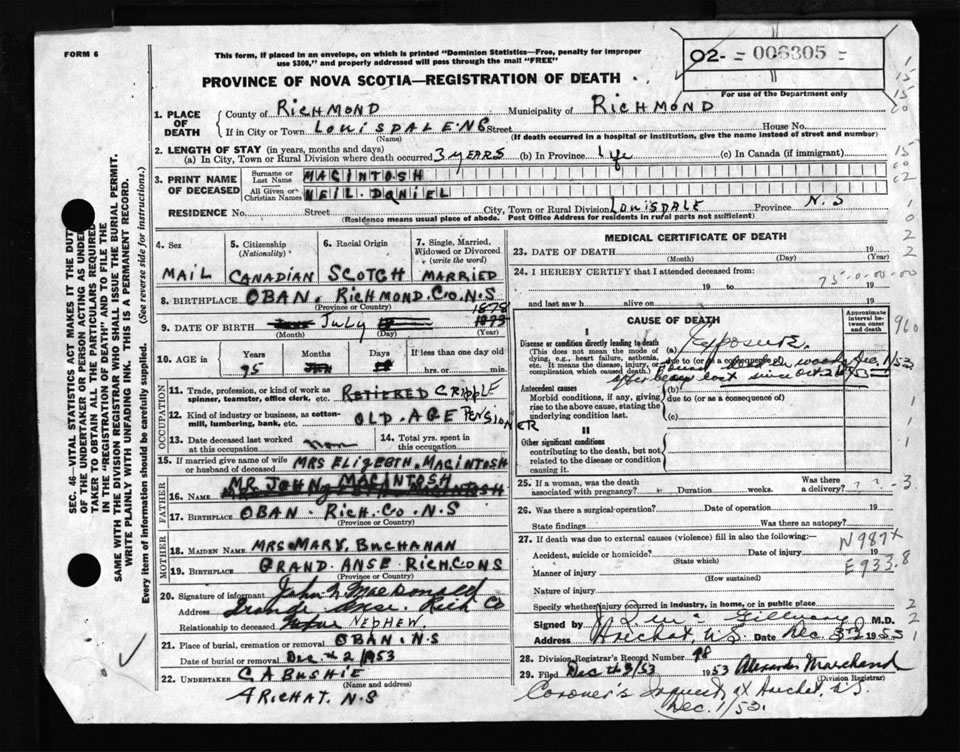 FORM 6
This form, if placed in an envelope, on which is printed "Dominion Statistics—Free, penalty for improper
use $300," and properly addressed will pass through the mail "FREE"
PROVINCE OF NOVA SCOTIA—REGISTRATION OF DEATH
02- = 006305 =
For use of the Department only
1. PLACE OF DEATH
County of RICHMOND Municipality of RICHMOND
If in City or Town LOUISDALE N S Street House No.
(Name) (If death occurred in a hospital or institution, give the name instead of street and number)
2. LENGTH OF STAY (in years, months and days)
(a) In City, Town or Rural Division where death occurred 3 YEARS (b) In Province Life (c) In Canada (if immigrant)
3. PRINT NAME OF DECEASED
Surname or Last Name MACINTOSH
All Given or Christian Names NEIL DANIEL
RESIDENCE No. Street City, Town or Rural Division LOUISDALE Province N.S
(Residence means usual place of abode. Post Office Address for residents in rural parts not sufficient)
4. Sex MAIL
5. Citizenship (Nationality) CANADIAN
6. Racial Origin SCOTCH
7. Single, Married, Widowed or Divorced (write the word) MARRIED
8. BIRTHPLACE OBAN. RICHMOND. CO. N.S
(Province or Country)
1878
9. DATE OF BIRTH June July 1879
(Month) (Day) (Year)
10. AGE in Years Months Days If less than one day old
75 hrs. or min.
OCCUPATION
11. Trade, profession, or kind of work as spinner, teamster, office clerk, etc. RETIERED CRIPPLE
12. Kind of industry or business, as cotton-mill, lumbering, bank, etc. OLD. AGE PENSIONER
13. Date deceased last worked at this occupation non
14. Total yrs. spent in this occupation
15. If married give name of wife or husband of deceased MRS ELIZEBTH. MACINTOSH
FATHER
16. NAME MR JOHN MACINTOSH
17. BIRTHPLACE OBAN. RICH. CO. N.S
(Province or Country)
MOTHER
18. MAIDEN NAME MRS MARY. BUCHANAN
19. BIRTHPLACE GRAND. ANSE. RICH. CO NS
(Province or Country)
20. Signature of informant John N. MacDonald
Address Grande Anse. Rich Co
Relationship to deceased NEPHEW.
21. Place of burial, cremation or removal OBAN. N.S
Date of burial or removal Dec th 2 1953
22. UNDERTAKER C A BUSHIE
(Name and address)
ARICHAT. N.S
MEDICAL CERTIFICATE OF DEATH
23. DATE OF DEATH 19
(Month) (Day) (Year)
24. I HEREBY CERTIFY that I attended deceased from:
19 to 19
and last saw h alive on
75-0-00-00
CAUSE OF DEATH
Approximate interval between onset and death
I
Disease or condition directly leading to death
(This does not mean the mode of dying, e.g., heart failure, asthenia, etc. It means the disease, injury, or complication which caused death.)
(a) Exposure.
due to (or as a consequence of)
Found dead in woods Dec. 1/53
after being lost since Oct 26/53
Antecedent causes
Morbid conditions, if any, giving rise to the above cause, stating the underlying condition last.
(b)
due to (or as a consequence of)
(c)
II
Other significant conditions
contributing to the death, but not related to the disease or condition causing it.
25. If a woman, was the death associated with pregnancy? Duration weeks. Was there a delivery?
26. Was there a surgical operation? Date of operation 19
State findings Was there an autopsy?
27. If death was due to external causes (violence) fill in also the following:
N 987X
Accident, suicide or homicide? Date of injury 19
(State which)
E933.8
Manner of injury
(How sustained)
Nature of injury
Specify whether injury occurred in industry, in home, or in public place
Signed by M.D.
Address Arichat, N.S. Date Dec. 1953
28. Division Registrar's Record Number 98
29. Filed Dec th 3/53 1953 Alexander Marchand
(Division Registrar)
Coroner's Inquest at Arichat. N.S.
Dec. 1/53.
SEC. 46—VITAL STATISTICS ACT MAKES IT THE DUTY
OF THE UNDERTAKER OR PERSON ACTING AS UNDER-
TAKER TO OBTAIN ALL THE PARTICULARS REQUIRED
IN THE "REGISTRATION OF DEATH" AND TO FILE THE
SAME WITH THE DIVISION REGISTRAR WHO SHALL ISSUE THE BURIAL PERMIT.
WRITE PLAINLY WITH UNFADING INK. THIS IS A PERMANENT RECORD.
Every item of information should be carefully supplied. (See reverse side for instructions.)